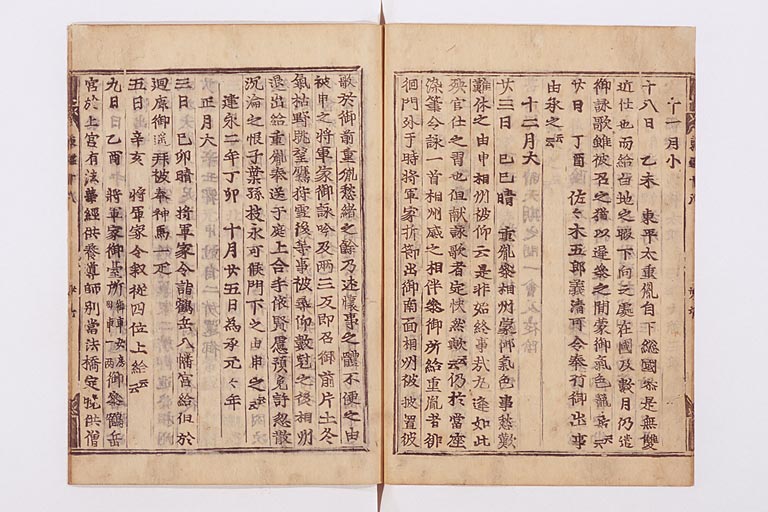 十一月小
十八日 乙未 東平太重胤自下総國參是無雙
近仕也而給白地之暇下向之處在國及數月仍遣
御詠歌雖被召之猶以遅參之間蒙御氣色籠居云云
廿日 丁酉陰 佐々木五郎義清再令奉行御出事
由承之云云
十二月大
廿三日 己巳晴 重胤參相州蒙御氣色事愁歎
難休之由申相州被仰云是非始終事哉凡逢如此
殃官仕之習也但献詠歌者定快然歟云云仍於當座
染筆令詠一首相州感之相伴參御所給重胤者徘
徊門外于時將軍家折節出御南面相州被披置彼
歌於御前重胤愁緒之餘乃述懐事之體不便之由
被申之將軍家御詠吟及兩三反即召御前片土冬
氣枯野眺望鷹狩雪後等事被尋仰數尅之後相州
退出給重胤奉送于庭上合手依賢慮預免許忽散
沉淪之恨子葉孫枝永可候門下之由申之云云
建永二年丁卯 十月廿五日為承元々年
正月大
三日 己卯晴 將軍家令詣鶴岳八幡宮給但於
廻廊御遥拜被奉神馬一疋云云
五日 辛亥 將軍家令叙從四位上給云云
九日 乙酉 將軍家御臺所 御參鶴岳
宮於上宮有法華經供養導師別當法橋定暁供僧